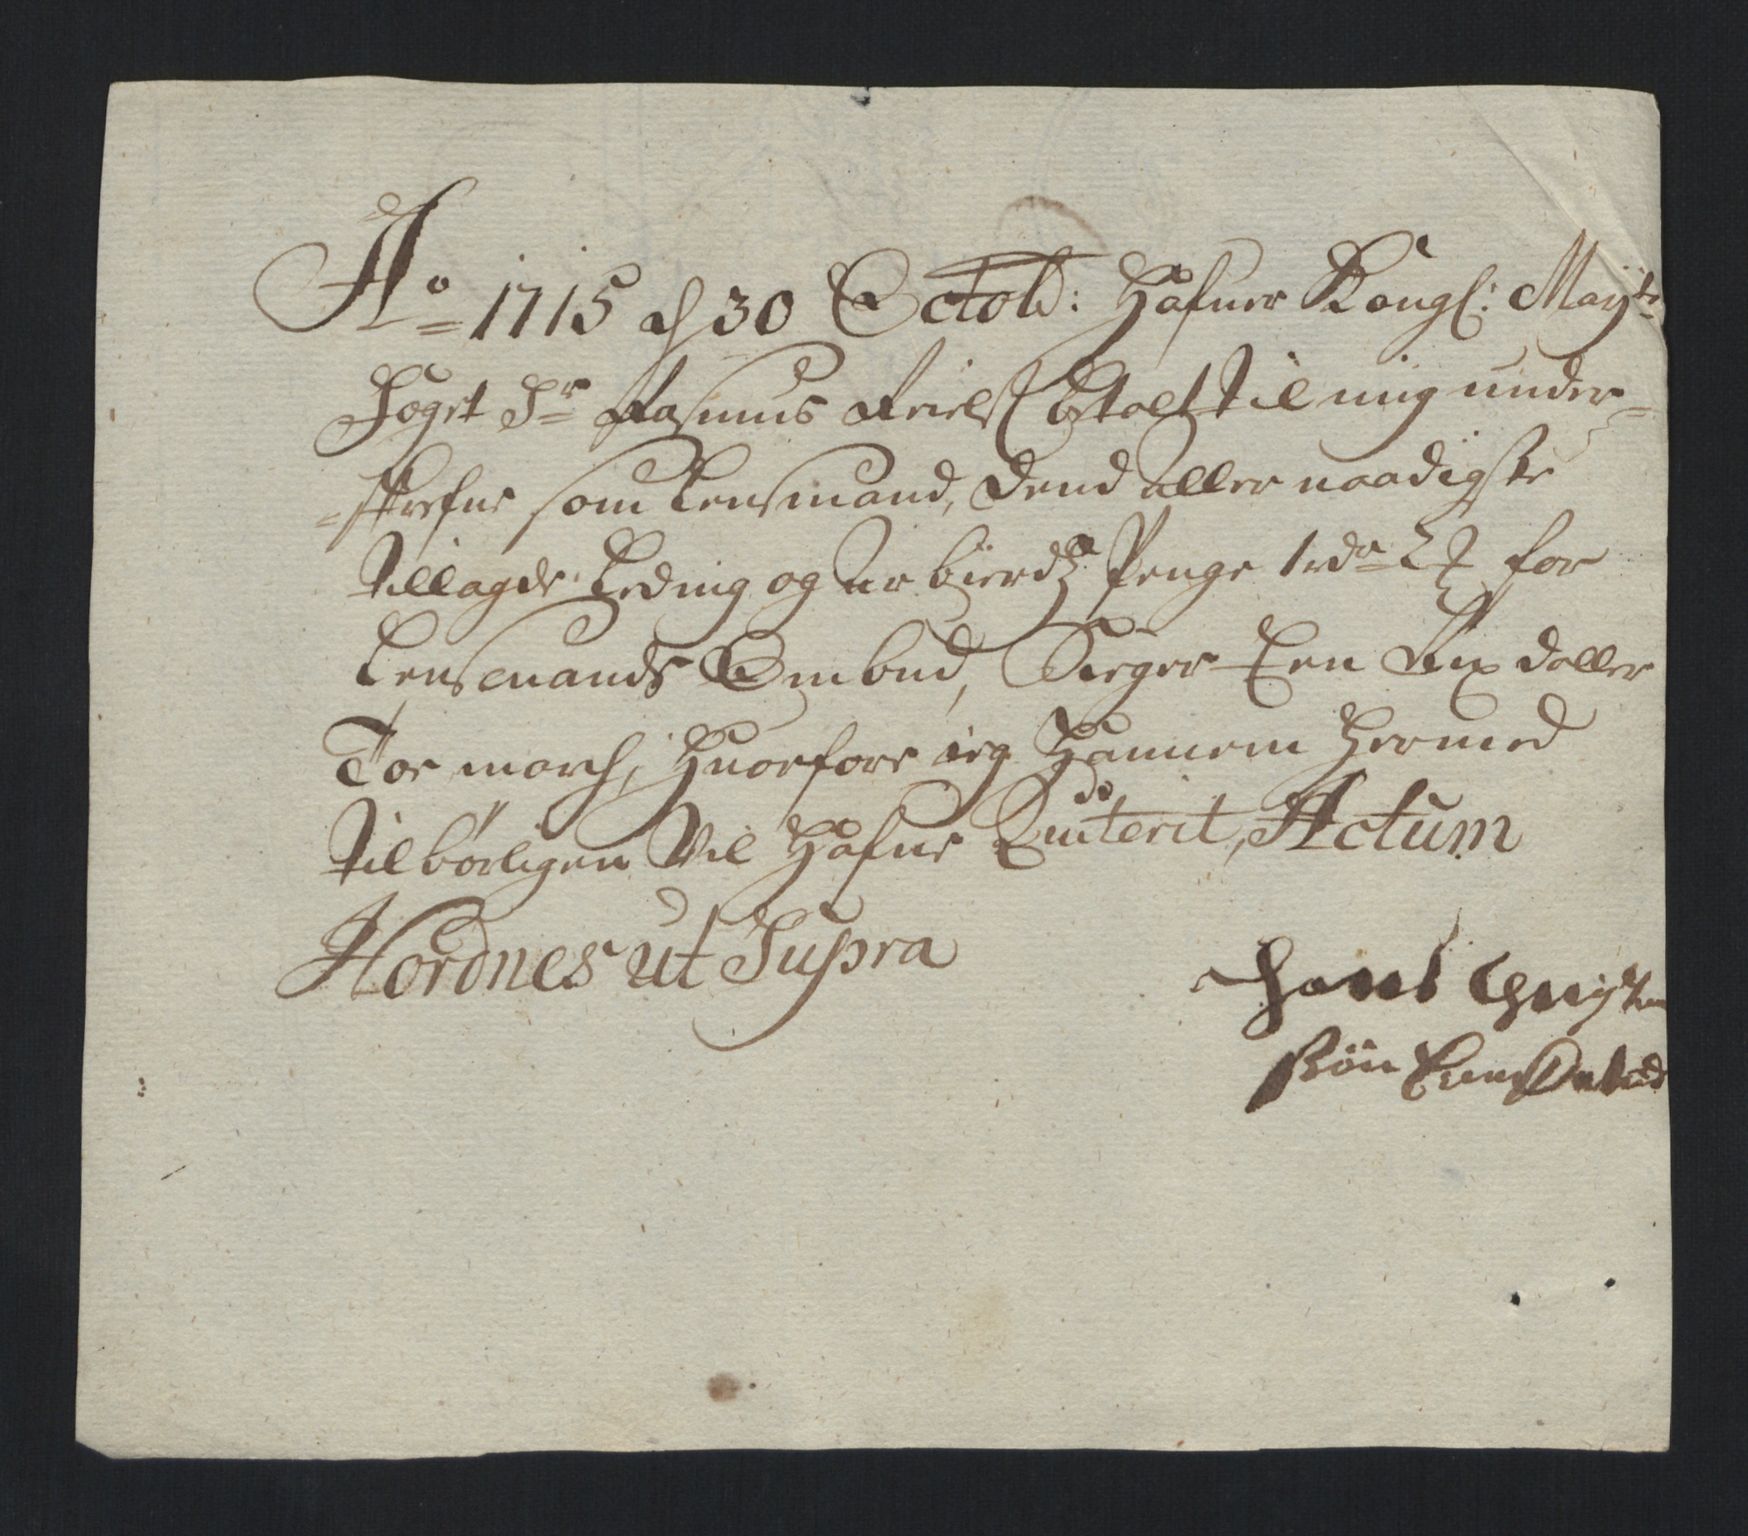 Ao 1715 d 30 Octob: Hafuer Kongl: Mayts
Foget Sr Rasmus Kriels betalt til mig under-
-skrefne som Lensmand, dend aller naadigste
tillagde Leding og ar bierds Penge 1 rdr 2 ℔ for
Lensmands Ombud, Siger Een Rix daller
Toe march, Huorfore ieg Hannem Hermed
tilbørligen Vil Hafue Quiterit, Actum
Hordnes ut Supra
Hans Christen
søn